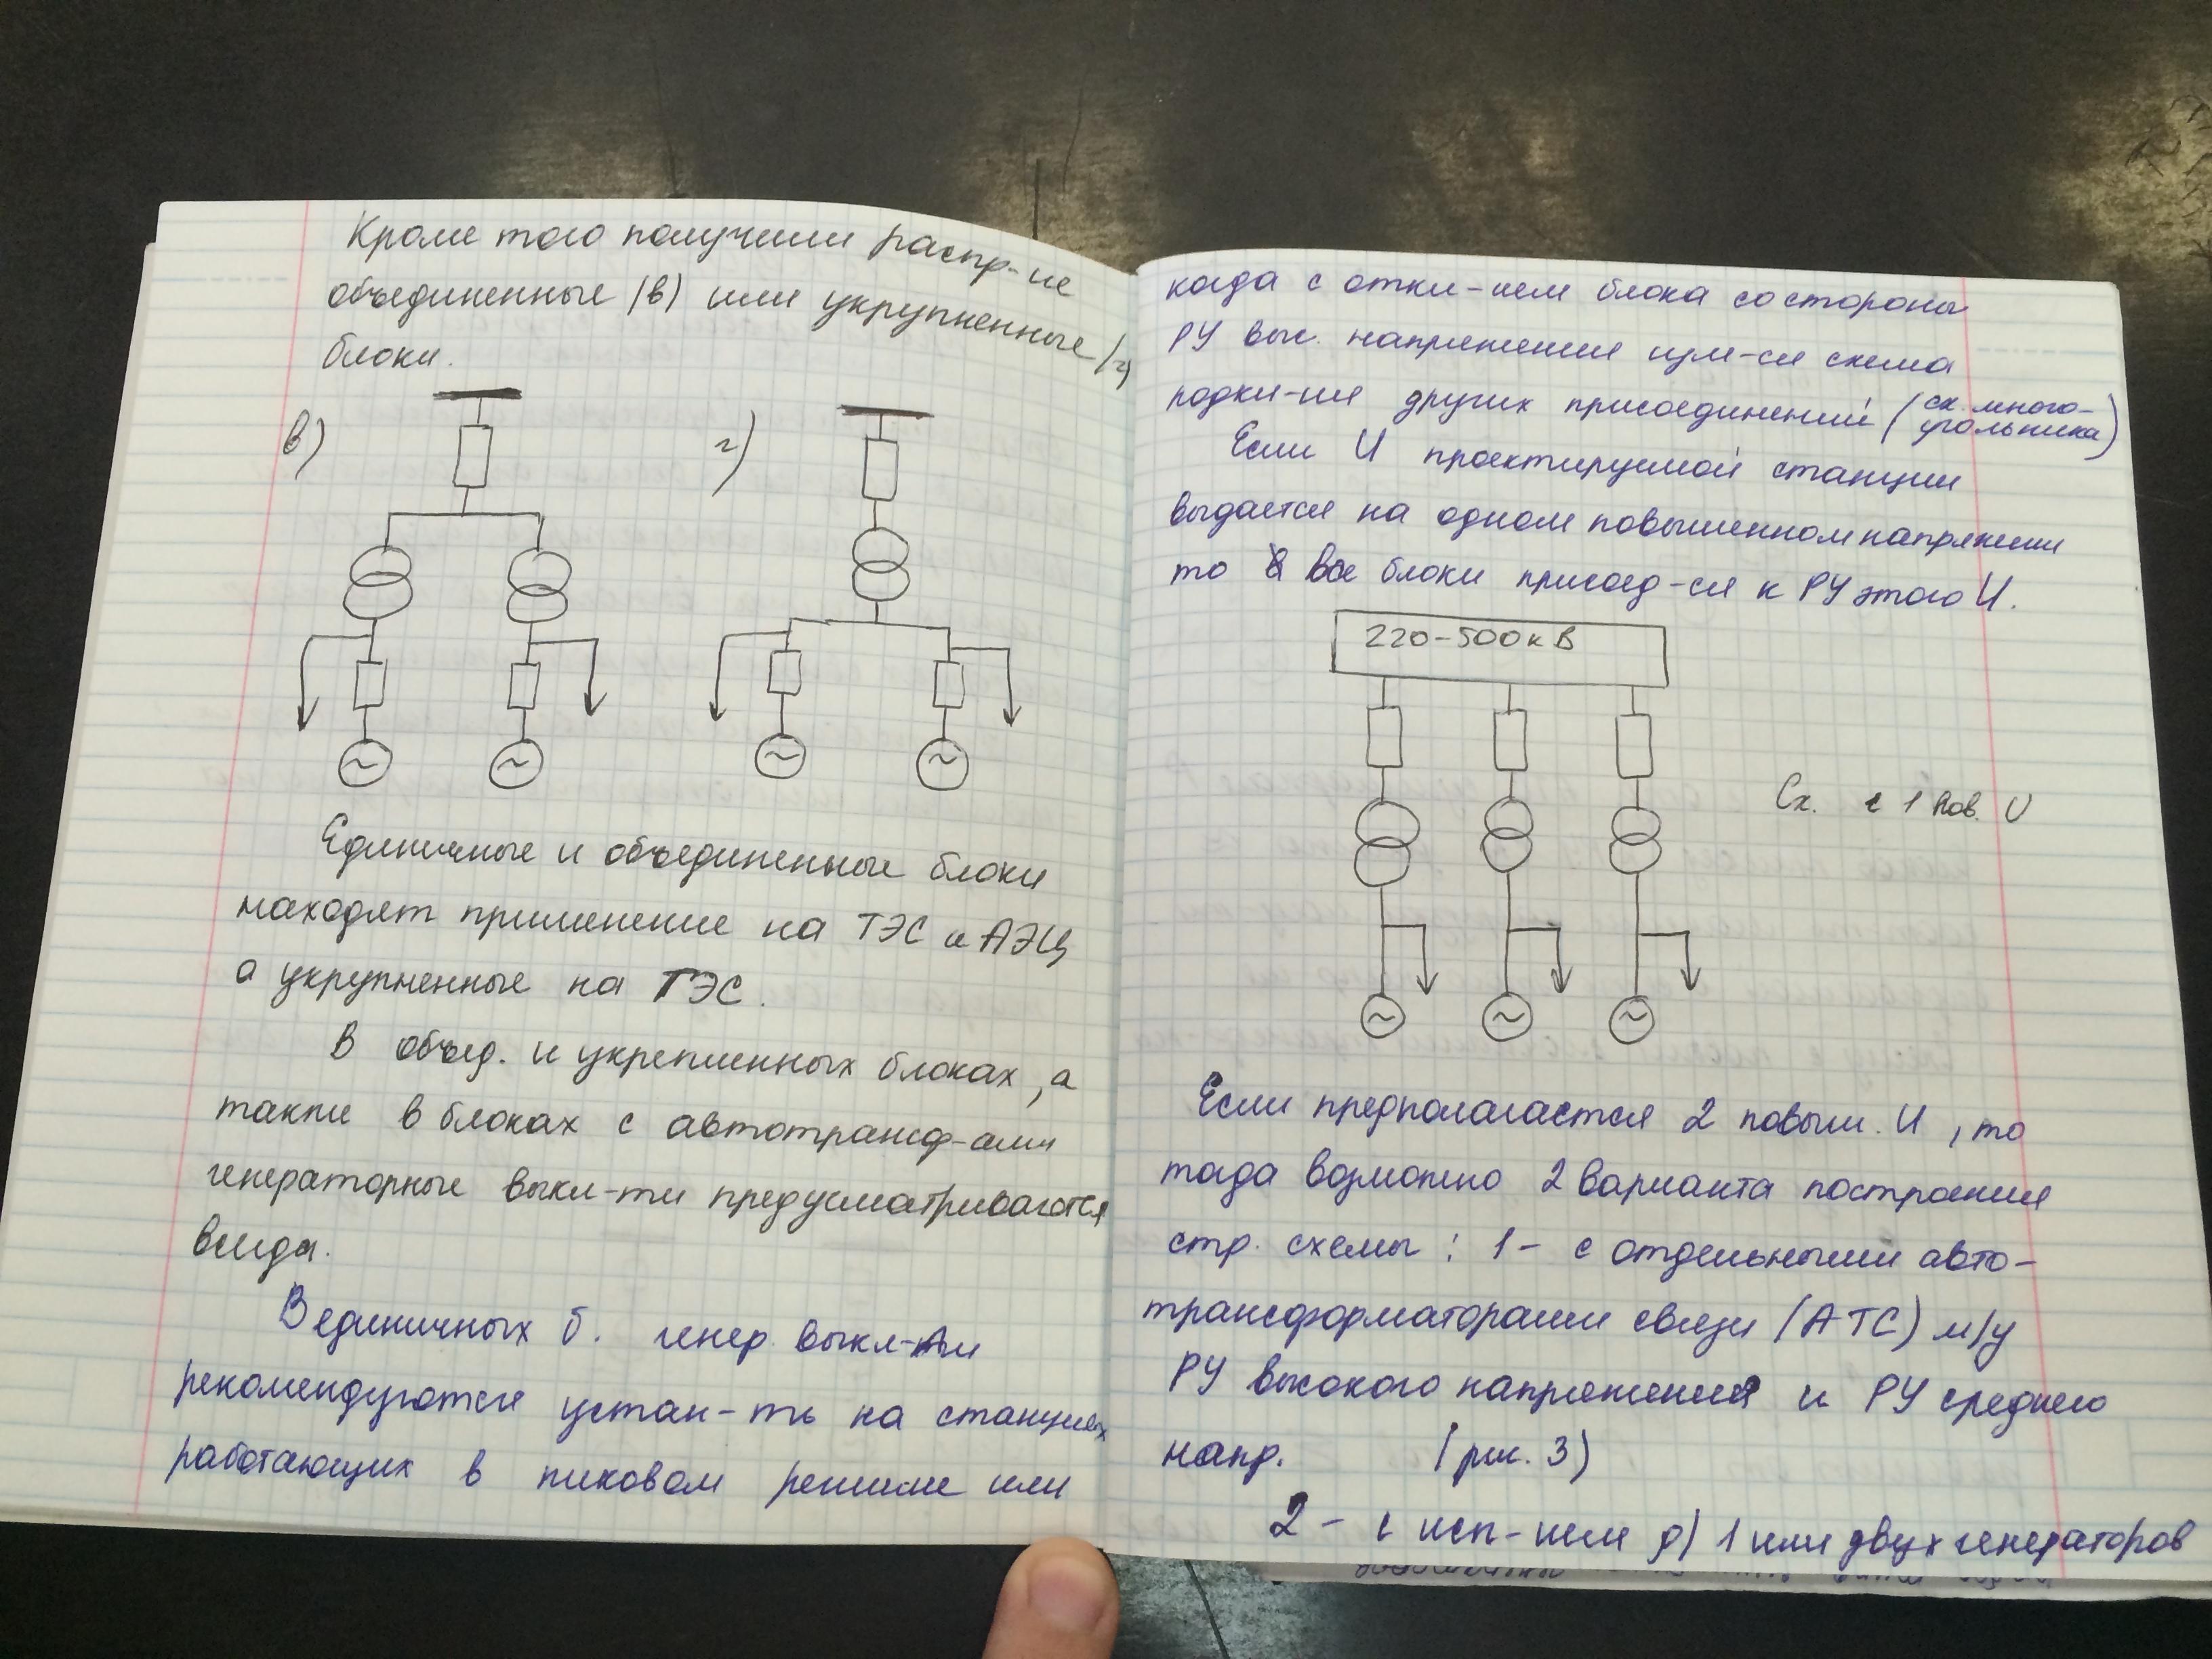 Кроме того получили распр-ие
объединенные (в) или укрупненные (г)
блоки.
в)
г)
Единичные и объединенные блоки
находят применение на ТЭС и АЭЦ
а укрупненные на ГЭС.
В объед. и укрепленных блоках, а
также в блоках с автотрансф-ами
генераторные выкл-ти предусматриваются
всегда.
В единичных б. генер. выкл-ли
рекомендуются устан-ть на станциях
работающих в пиковом режиме или
когда с откл-ием блока со стороны
РУ выс. напряжения изм-ся схема
подкл-ия других присоединений (сх. много-
угольника)
Если U проектируемой станции
выдается на одном повышенном напряжении
то все блоки присоед-ся к РУ этого U.
220-500 кВ
Сх. с 1 пов. U
Если предполагается 2 повыш. U, то
тогда возможно 2 варианта построения
стр. схемы: 1 - с отдельными авто-
трансформаторами связи (АТС) м/у
РУ высокого напряжения и РУ среднего
напр. (рис. 3)
2 - с исп-ием д) 1 или двух генераторов